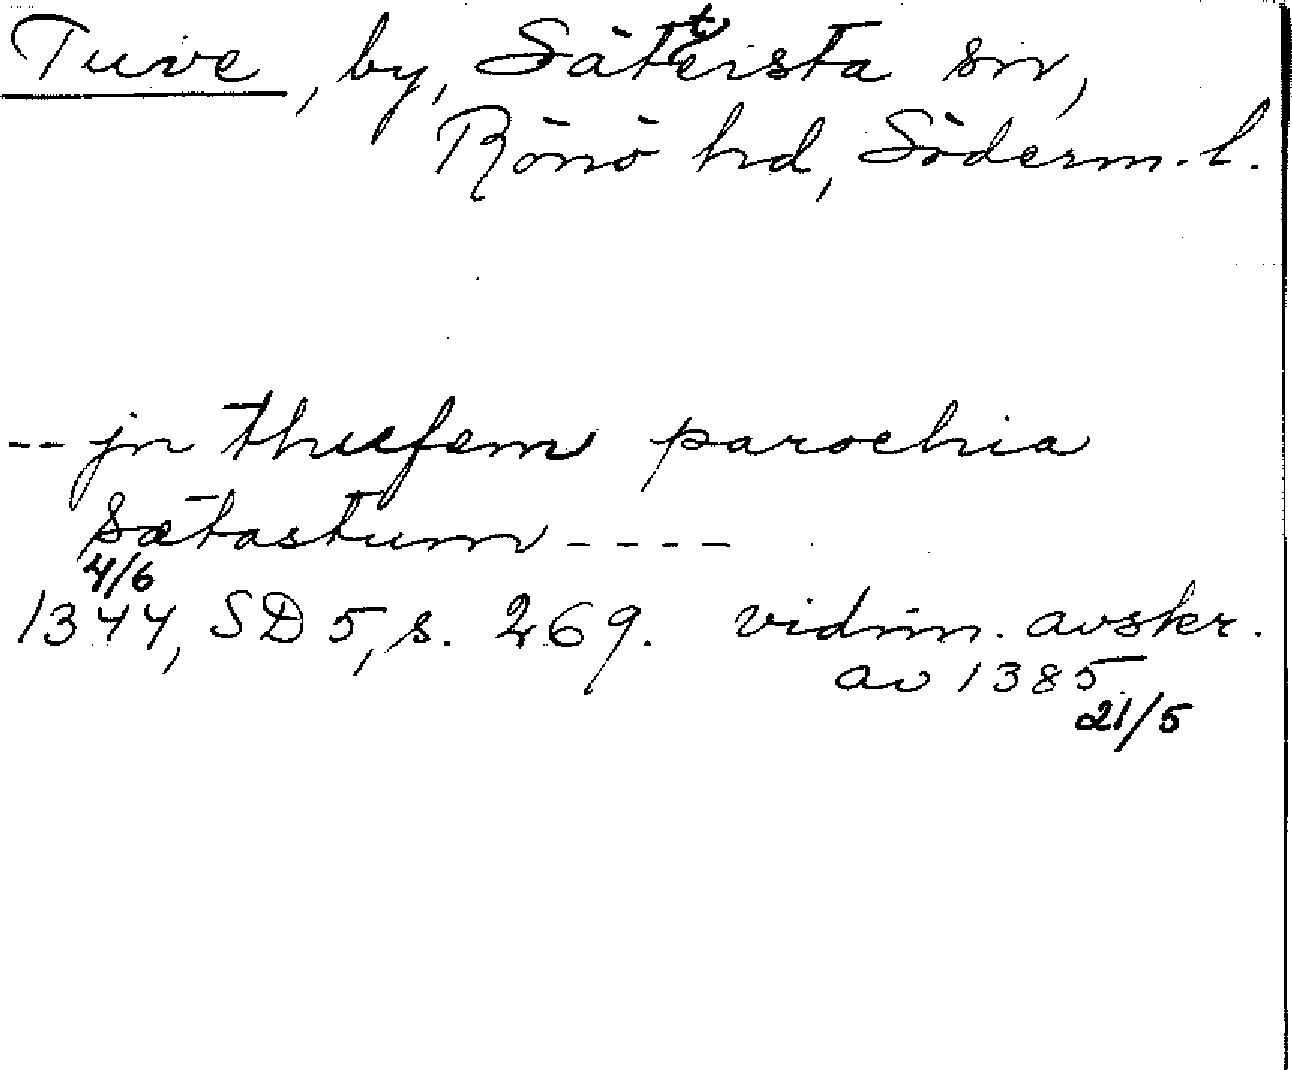 Tuve, by, Sättersta sn,
Rönö hd, Söderm. l.
-- jn thufem parochia
Sætastum ----
4/6
1344, SD 5, s. 269. vidim. avskr.
av 1385
21/5